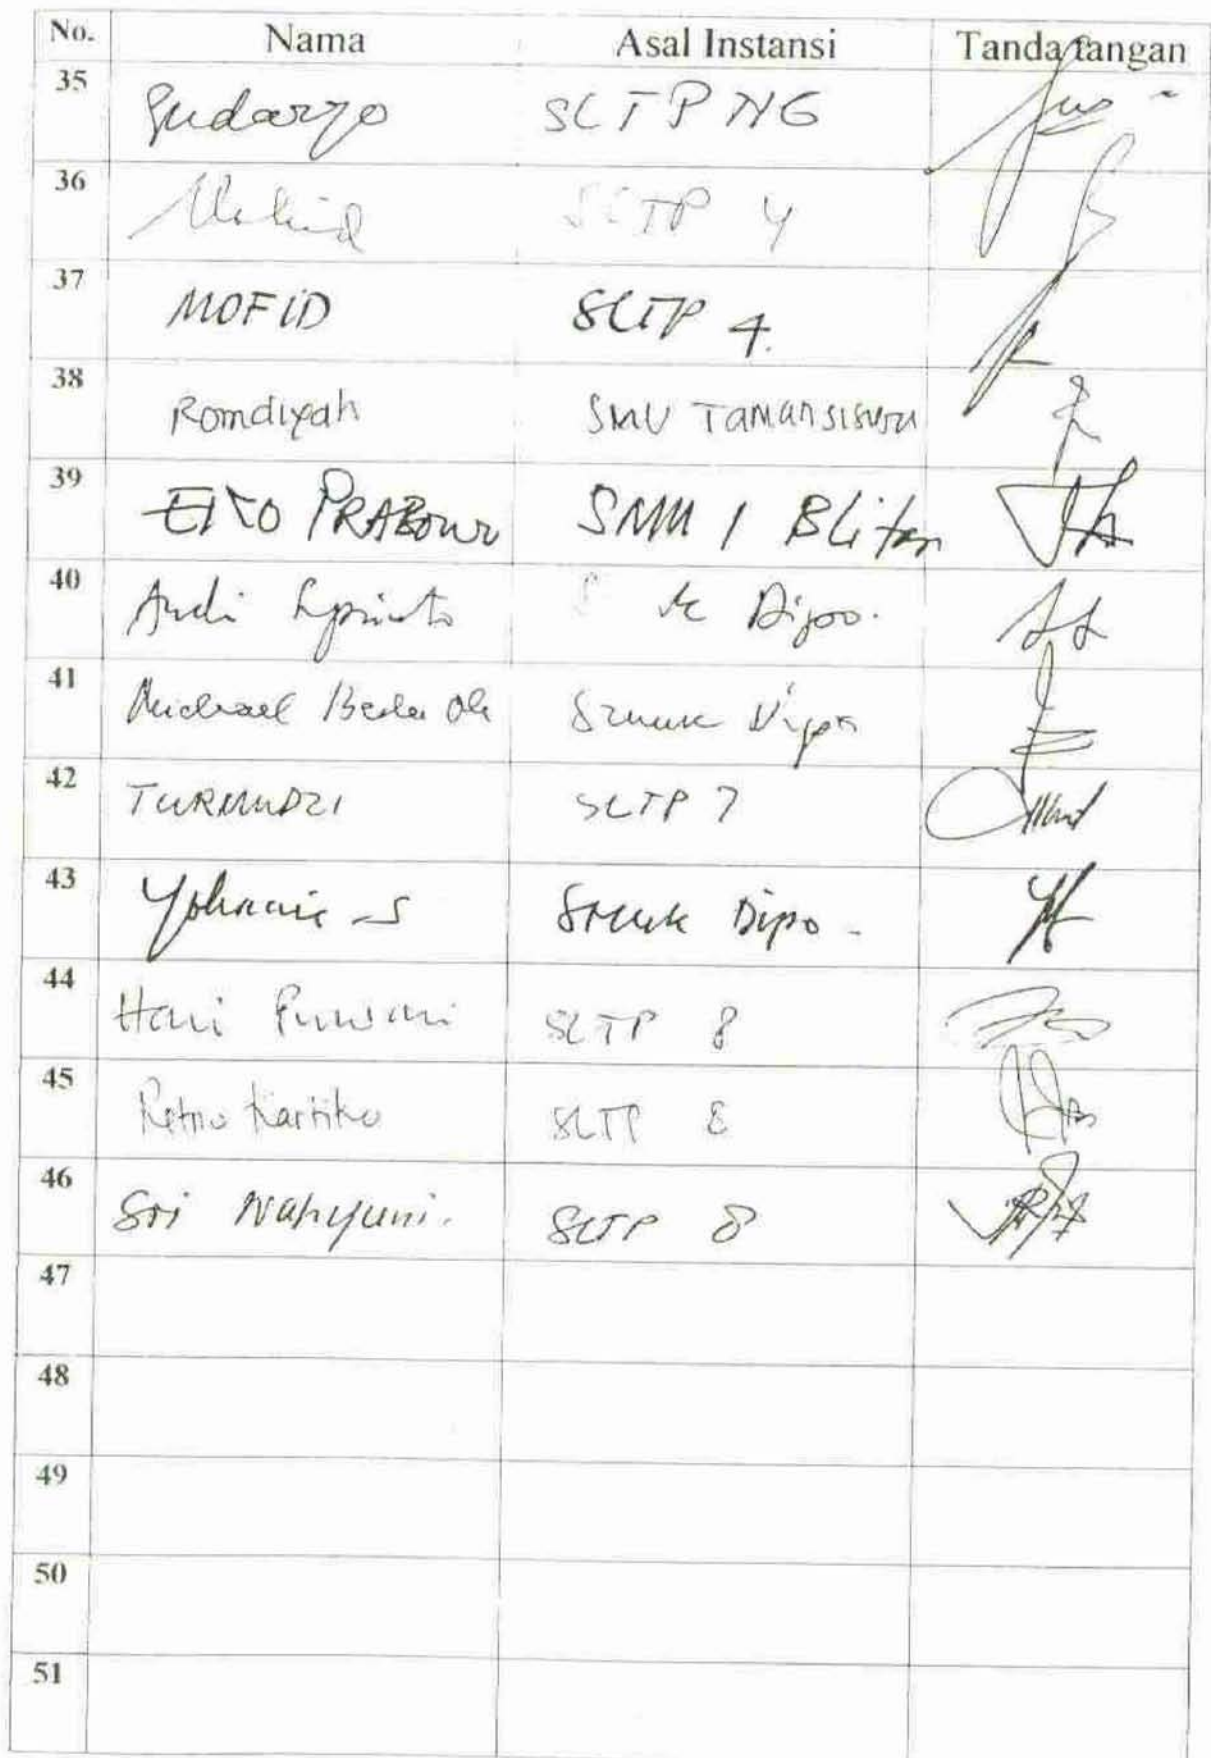 No. Nama Asal Instansi Tanda tangan
35 Sudaryo SLTP N6
36 SLTP 4
37 MOFID SLTP 4.
38 Romdiyah SMU Tamansiswa
39 EKO PRABOWO SMU 1 Blitar
40 Andi Dipo.
41 Michael Beda Ola Smuk Dipo
42 TURMUDZI SLTP 7
43 Yohanis S Smuk Dipo -
44 Hari Purwani SLTP 8
45 Retno Kartiko SLTP 8
46 Sri Wahyuni. SLTP 8
47
48
49
50
51